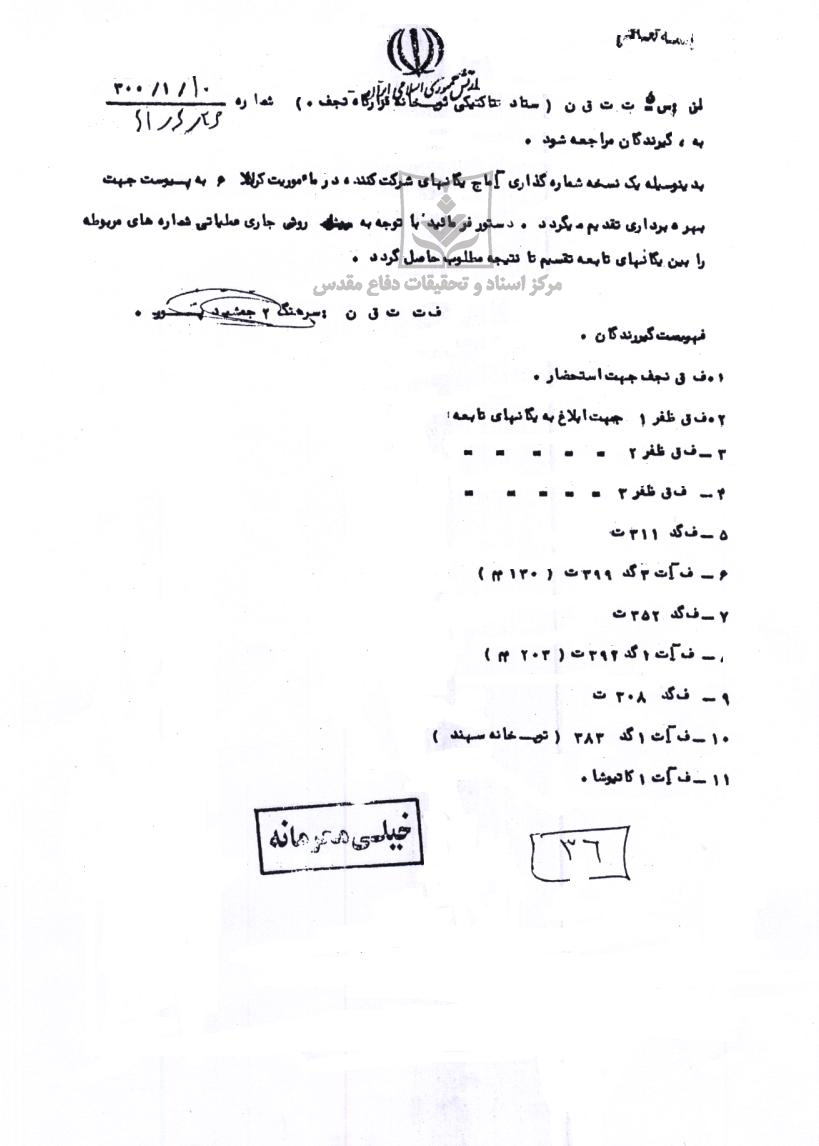 بسمه تعالی
ارتش جمهوری اسلامی ایران
ت ت ق ن ( ستاد تاکتیکی توپخانه قرارگاه نجف ۰ ) شماره ۳۰۰/۱/۱۰
به ، گیرندگان مراجعه شود ۰
بدینوسیله یک نسخه شماره گذاری آماج یگانهای شرکت کننده در ماموریت کربلا ۶ به پیوست جهت
بهره برداری تقدیم میگردد ۰ دستور فرمائید با توجه به روش جاری عملیاتی شماره های مربوطه
را بین یگانهای تابعه تقسیم تا نتیجه مطلوب حاصل گردد ۰
مرکز اسناد و تحقیقات دفاع مقدس
ف ت ت ق ن : سرهنگ ۲ جمشید
فهرست گیرندگان ۰
۱۰ ف ق نجف جهت استحضار ۰
۲۰ ف ق ظفر ۱ جهت ابلاغ به یگانهای تابعه:
۳ ــ ف ق ظفر ۲ = = = = =
۴ ــ ف ق ظفر ۳ = = = = =
۵ ــ ف گد ۳۱۱ ت
۶ ــ ف آت ۳ گد ۳۹۹ ت ( ۱۳۰ مم )
۷ ــ ف گد ۳۵۲ ت
ــ ف آت ۱ گد ۳۹۲ ت ( ۲۰۳ مم )
۹ ــ ف گد ۳۰۸ ت
۱۰ ــ ف آت ۱ گد ۳۸۳ ( توپخانه سهند )
۱۱ ــ ف آت ۱ کاتیوشا ۰
خیلی محرمانه
۳۶